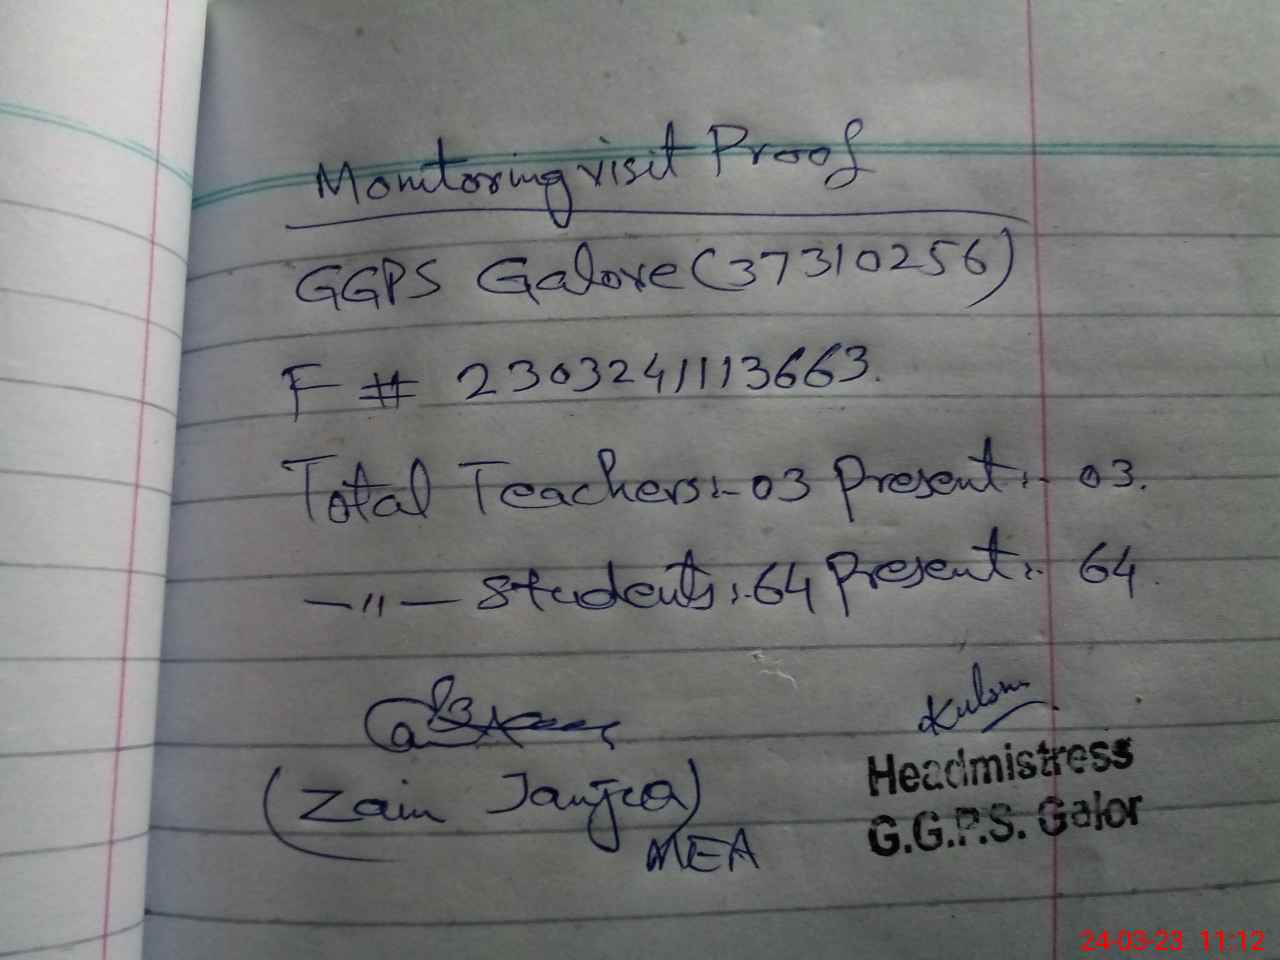 Monitoring visit Proof
GGPS Galore (37310256)
F # 2303241113663.
Total Teachers:- 03 Present:- 03.
—"— Students:- 64 Present:- 64.
Kulsum
(Zain Janjua)
MEA
Headmistress
G.G.P.S. Galor
24-03-23 11:12